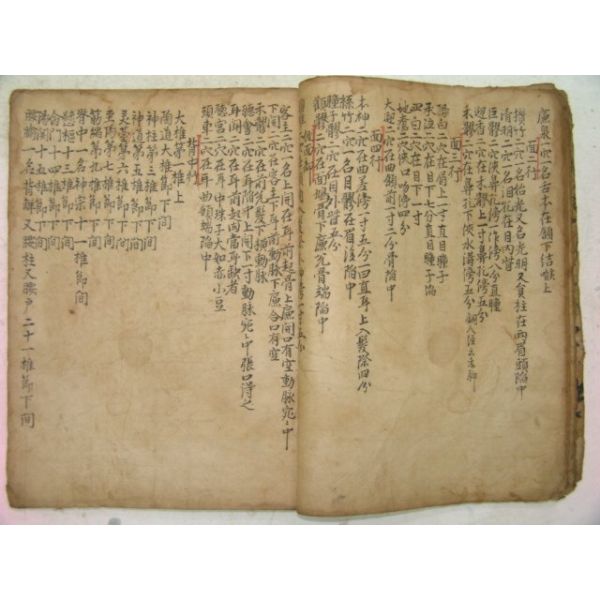 廉泉一穴一名舌本在頷下結喉上
面二行
攢竹二穴一名始光又名光明又負柱在兩眉頭陷中
睛明二穴一名淚孔在目內眥
巨髎二穴俠鼻孔傍八分直瞳
迎香二穴在禾髎上一寸鼻孔傍五分
禾髎二穴在鼻孔下俠水溝傍五分
面三行
陽白二穴在眉上一寸直目瞳子
承泣二穴在目下七分直目瞳子陷
四白二穴在目下一寸
地倉二穴俠口吻傍四分
大迎二穴在曲頷前一寸二分骨陷中
面四行
本神二穴在曲差傍一寸五分一曰直耳上入髮際四分
絲竹二穴一名目髎在眉後陷中
瞳子髎二穴在目外眥五分
顴髎二穴在面頄骨下廉兌骨端陷中
客主二穴一名上關在耳前起骨上廉開口有空動脉宛宛中
下關二穴在客主下耳前動脉下廉合口有空
禾髎二穴在耳前兌髮下橫動脉
聽會二穴在耳陷中上關下一寸動脉宛宛中張口得之
耳門二穴在耳前起肉當耳缺者
聽宮二穴在耳中珠子大如赤小豆
頰車二穴在耳曲頰端陷中
背中行
大椎第一椎上
陶道大椎節下間
神柱第三椎節下間
神道第五椎節下間
灵臺第六椎節下間
至陽第七椎節下間
筋縮第九椎節下間
脊中一名神宗十一椎節間
懸樞十三椎節下間
命門十四椎節下間
陽關十六椎節下間
腰俞一名背解又腰柱又腰戶二十一椎節下間